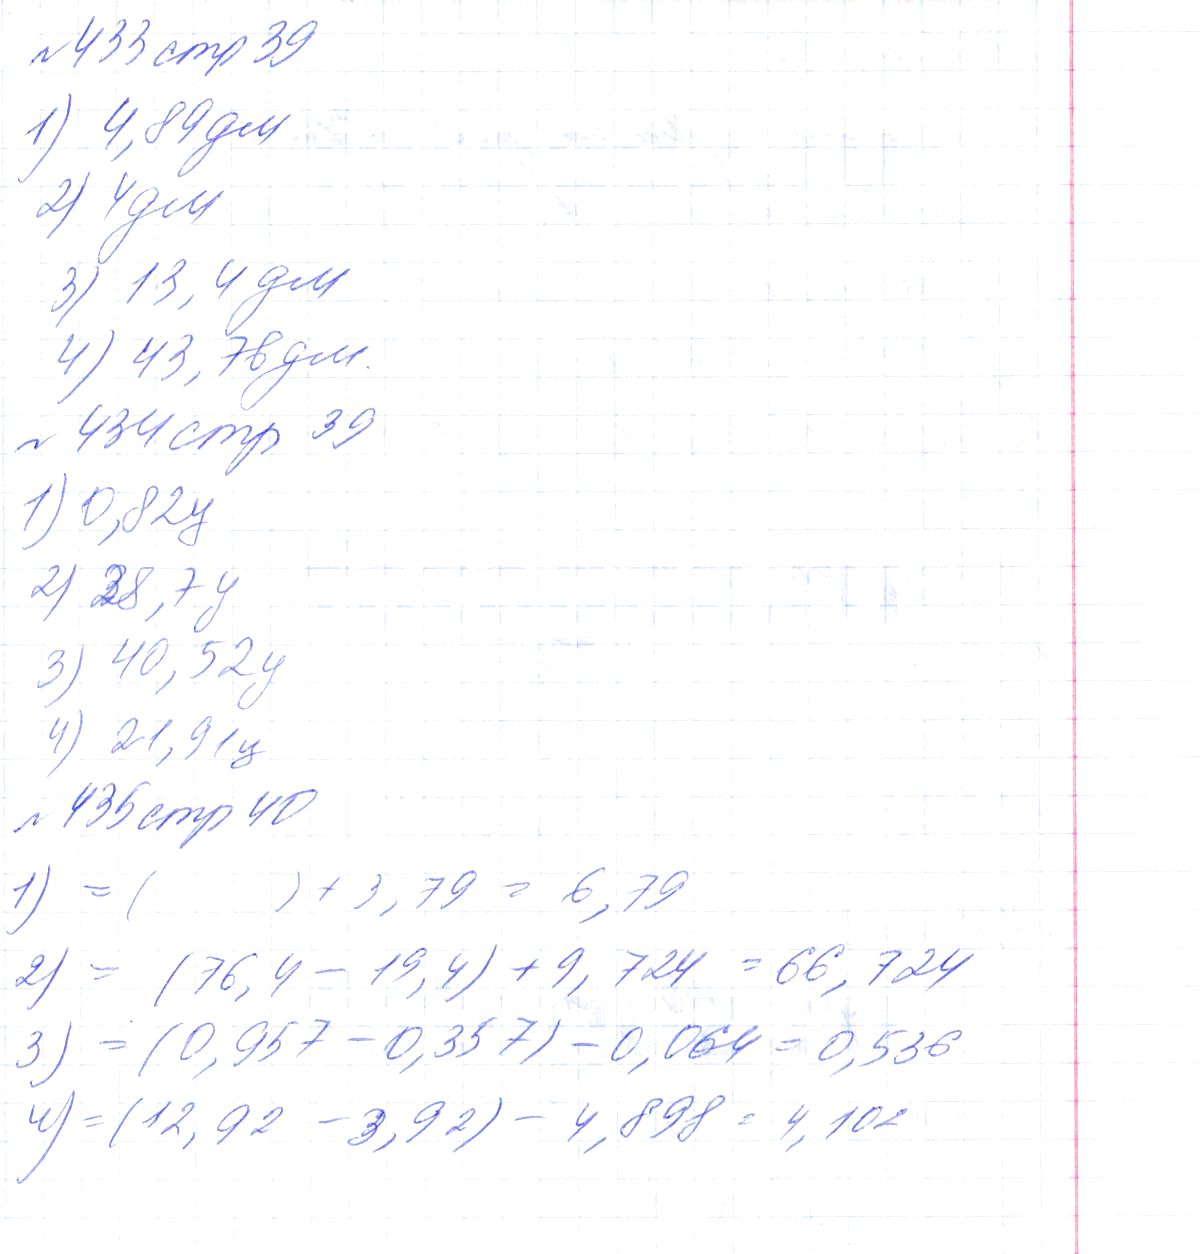 №433 стр 39
1) 4,89дм
2) 4дм
3) 13,4дм
4) 43,78дм.
№434 стр 39
1) 0,82ц
2) 38,7ц
3) 40,52ц
4) 21,91ц
№435 стр 40
1) = ( ) + 3,79 = 6,79
2) = (76,4 - 19,4) + 9,724 = 66,724
3) = (0,957 - 0,357) - 0,064 = 0,536
4) = (12,92 - 3,92) - 4,898 = 4,102